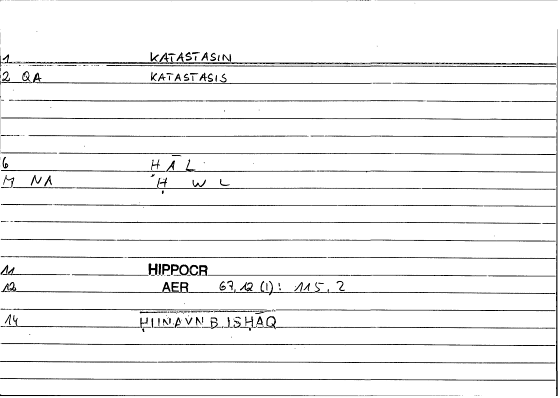 1 KATASTASIN
2 QA KATASTASIS
6 ḤĀL
M NA Ḥ W L
11 HIPPOCR
12 AER 67,12 (1): 115,2
14 ḤUNAYN B ISḤĀQ